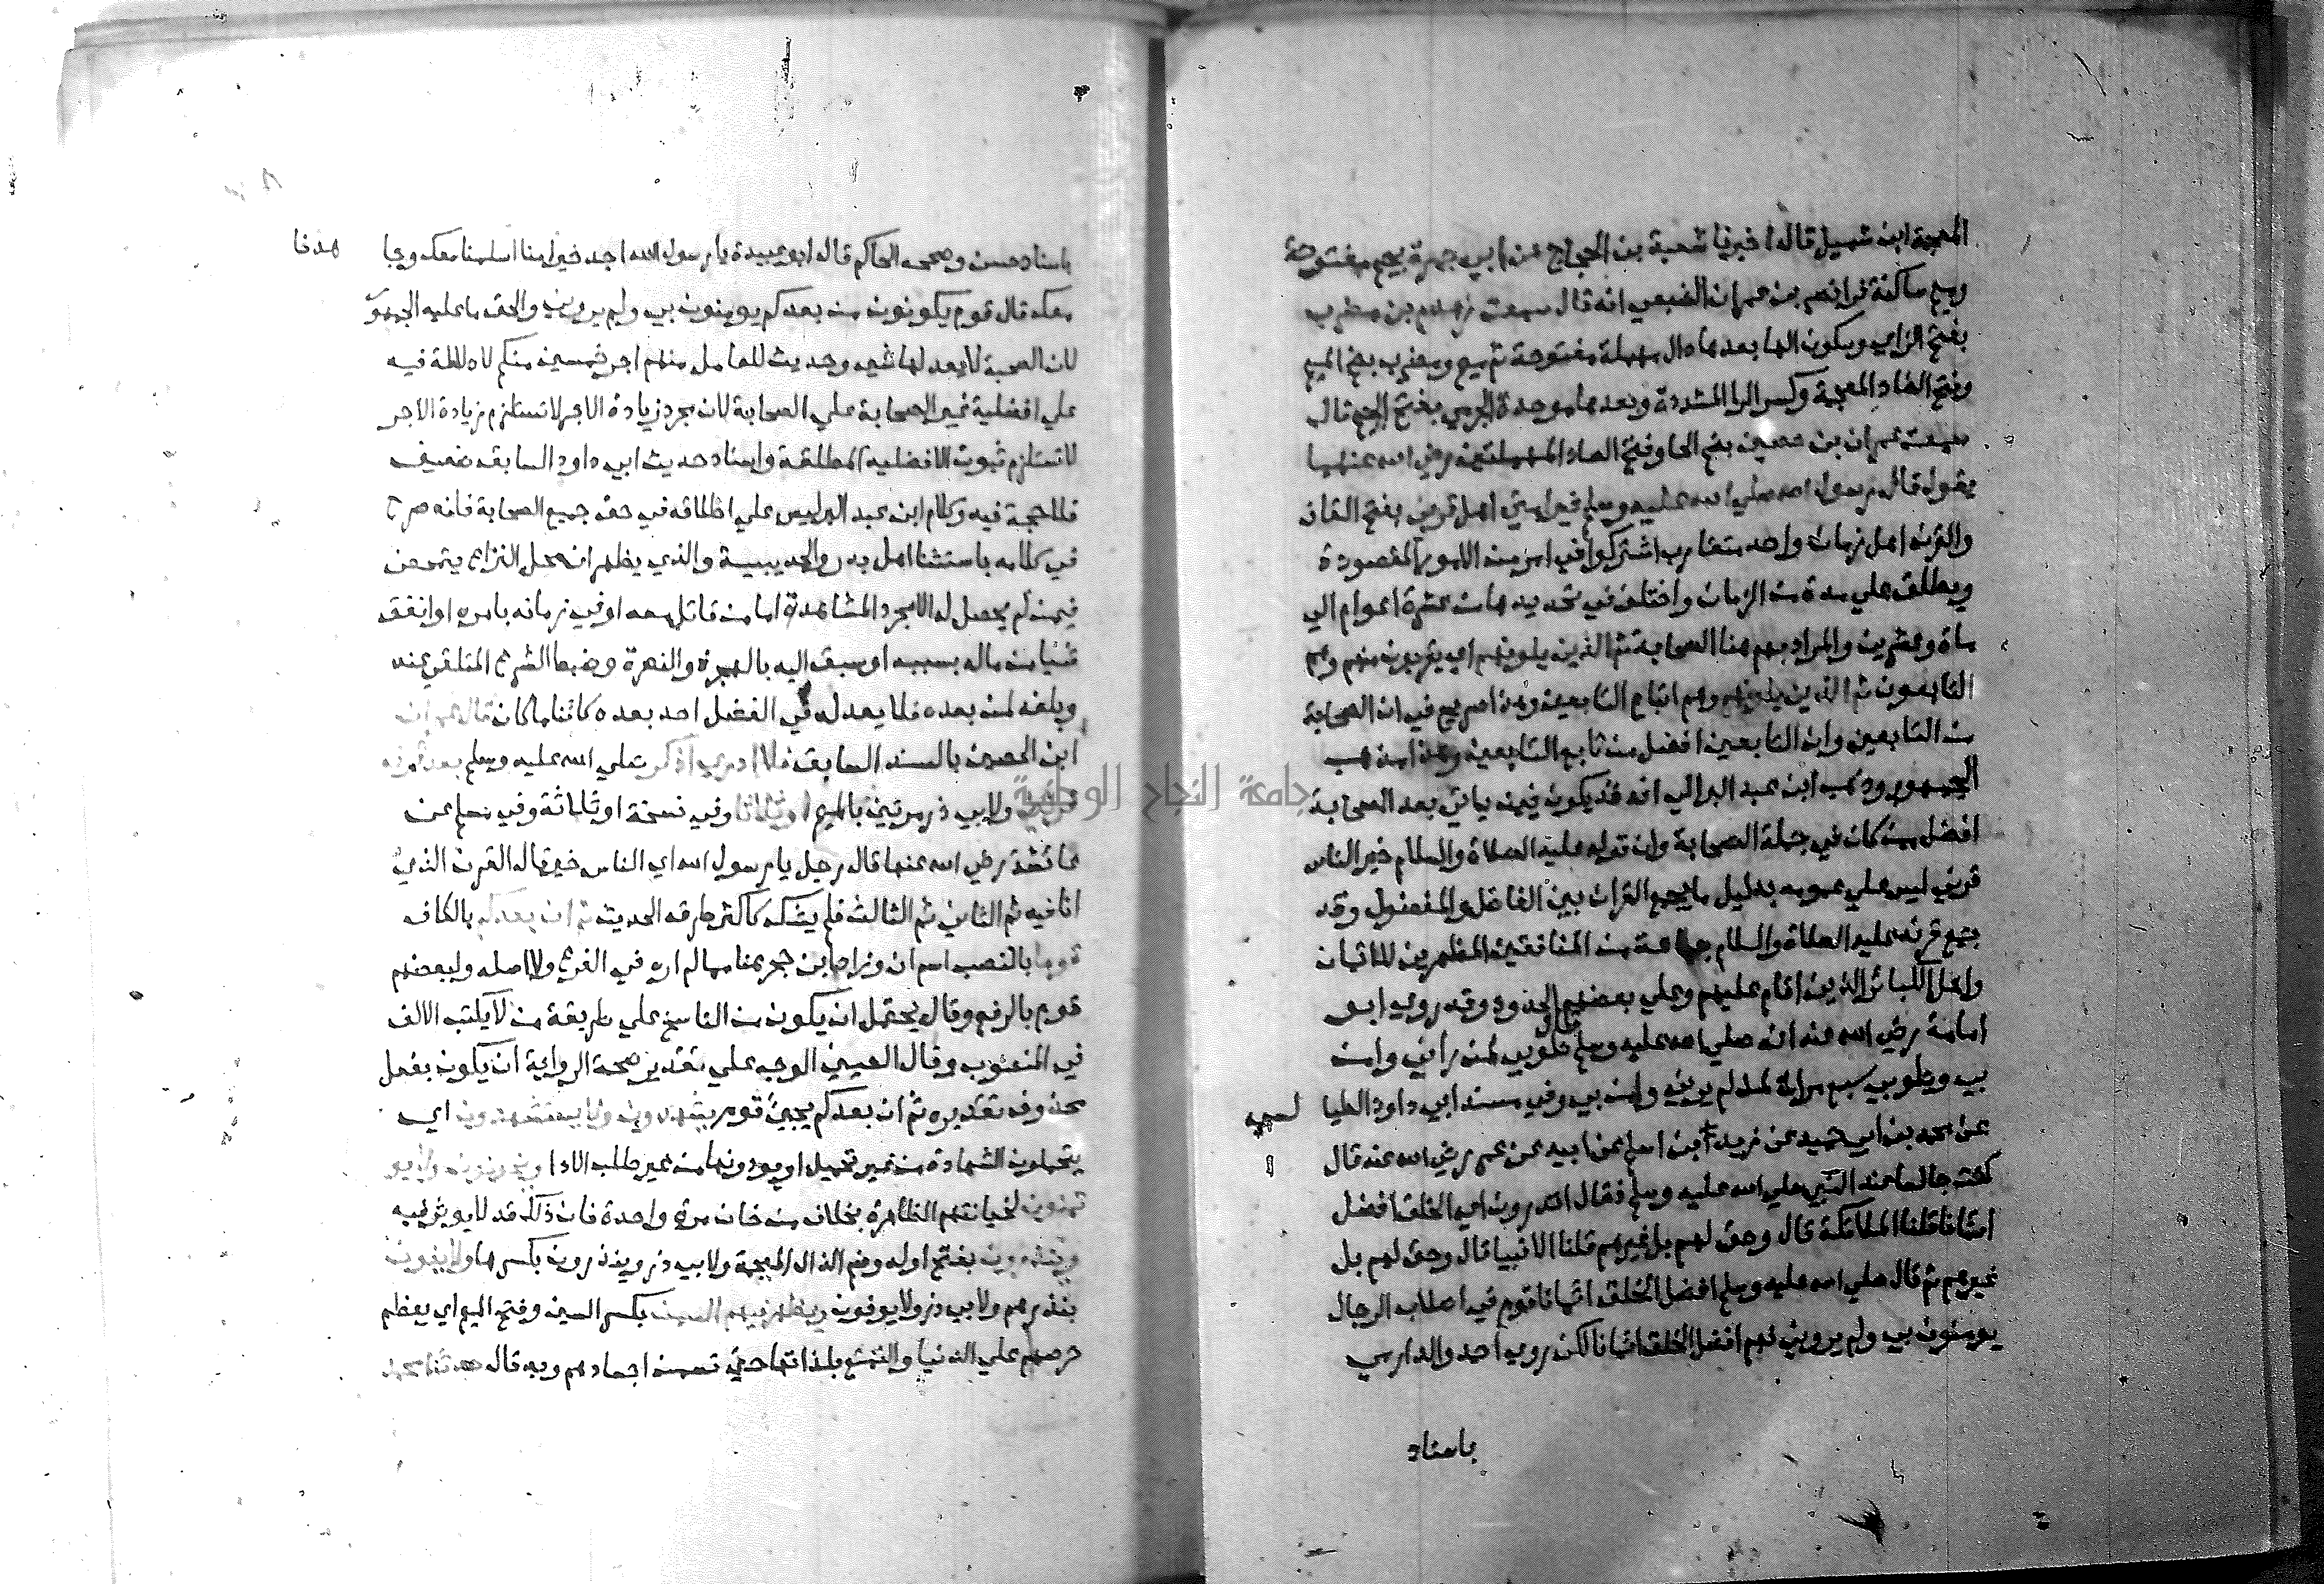 المعجمة ابن شميل قال اخبرنا شعبة بن الحجاج عن ابي جمرة بجيم مفتوحة
وميم ساكنة فرا نصر بن عمران الضبعي انه قال سمعت زهدم بن مضرب
بفتح الزاي وسكون الها بعدها دال مهملة مفتوحة ثم ميم ومضرب بضم الميم
وفتح الضاد المعجمة وكسر الرا المشددة وبعدها موحدة الجرمي بفتح الجيم قال
سمعت عمران بن حصين بضم الحا وفتح الصاد المهملتين رضي الله عنهما
يقول قال رسول الله صلي الله عليه وسلم خير امتي اهل قرني بفتح القاف
والقرن اهل زمان واحد متقارب اشتركوا في امر من الامور المقصودة
ويطلق علي مدة من الزمان واختلف في تحديدها من عشرة اعوام الي
ماة وعشرين والمراد بهم هنا الصحابة ثم الذين يلونهم اي يقربون منهم وهم
التابعون ثم الذين يلونهم وهم اتباع التابعين وهذا صريح في ان الصحابة
من التابعين وان التابعين افضل من تابع التابعين وهذا مذهب
الجمهور وذهب ابن عبد البر الي انه قد يكون فيمن ياتي بعد الصحابة
افضل ممن كان في جملة الصحابة وان قوله عليه الصلاة والسلام خير الناس
قرني ليس علي عمومه بدليل ما يجمع القران بين الفاضل والمفضول وقد
جمع قرنه عليه الصلاة والسلام جماعة من المنافقين المظهرين للايمان
واهل الكبائر الذين اقام عليهم وعلي بعضهم الحدود وقد روي ابو
امامة رضي الله عنه انه صلي الله عليه وسلم قال طوبي لمن راني وامن
بي وطوبي سبع مرات لمن لم يرني وامن بي وفي مسند ابي داود الطيا لسي
عن محمد بن ابي حميد عن زيد ابن اسلم عن ابيه عن عمر رضي الله عنه قال
كنت جالسا عند النبي صلي الله عليه وسلم فقال اتدرون اي الخلق افضل
ايمانا قلنا الملائكة قال وحق لهم بل غيرهم قلنا الانبيا قال وحق لهم بل
غيرهم ثم قال صلي الله عليه وسلم افضل الخلق ايمانا قوم في اصلاب الرجال
يومنون بي ولم يروني فهم افضل الخلق ايمانا لكن روي احمد والدارمي
باسناد
باسناد حسن وصححه الحاكم قال ابو عبيدة يا رسول الله احد خير منا اسلمنا معك وجا هدنا
معك قال قوم يكونون من بعدكم يومنون بي ولم يروني والحق ما عليه الجمهور
لان الصحبة لا يعدلها شي وحديث للعامل منهم اجر خمسين منكم لا دلالة فيه
علي افضلية غير الصحابة علي الصحابة لان مجرد زيادة الاجر لا تستلزم زيادة الاجر
لا تستلزم ثبوت الافضلية المطلقة واسناد حديث ابي داود السابق ضعيف
فلا حجة فيه وكلام ابن عبد البر ليس علي اطلاقه في حق جميع الصحابة فانه صرح
في كلامه باستثنا اهل بدر والحديبية والذي يظهر ان محل النزاع يتمحض
فيمن لم يحصل له الا مجرد المشاهدة اما من قاتل معه او في زمانه بامره او انفق
شيا من ماله بسببه او سبق اليه بالهجرة والنصرة وضبط الشرع المتلقي عنه
وبلغه لمن بعده فلا يعدله في الفضل احد بعده كائنا ما كان قال عمران
ابن الحصين بالسند السابق فلا ادري اذكر صلي الله عليه وسلم بعد قرنه
قرنين ولابي ذر مرتين بالميم او ثلاثا وفي نسخة او ثلاثة وفي مسلم عن
عائشة رضي الله عنها قال رجل يا رسول الله اي الناس خير قال القرن الذي
انا فيه ثم الثاني ثم الثالث فلم يشك كاكثر طرق الحديث ثم ان بعدكم بالكاف
قوما بالنصب اسم ان وزاد ابن حجر هنا مما لم اره في الفرع ولا اصله ولبعضهم
قوم بالرفع وقال يحتمل ان يكون من الناسخ علي طريقة من لا يكتب الالف
في المنصوب وقال العيني الوجه علي تقدير صحة الرواية ان يكون بفعل
محذوف تقديره ثم ان بعدكم يجيئ قوم يشهدون ولا يستشهدون اي
يتحملون الشهادة من غير تحميل او يودونها من غير طلب الادا ويخونون ولا يو
تمنون لخيانتهم الظاهرة بخلاف من خان مرة واحدة فان ذلك قد لا يوثر فيه
وينذرون بفتح اوله وضم الذال المعجمة ولابي ذر وينذرون بكسرها ولا يفون
بنذرهم ولابي ذر ولا يوفون ويظهر فيهم السمن بكسر السين وفتح الميم اي يعظم
حرصهم علي الدنيا والتمتع بلذاتها حتي تسمن اجسادهم وبه قال حدثنا محمد
جامعة النجاح الوطنية